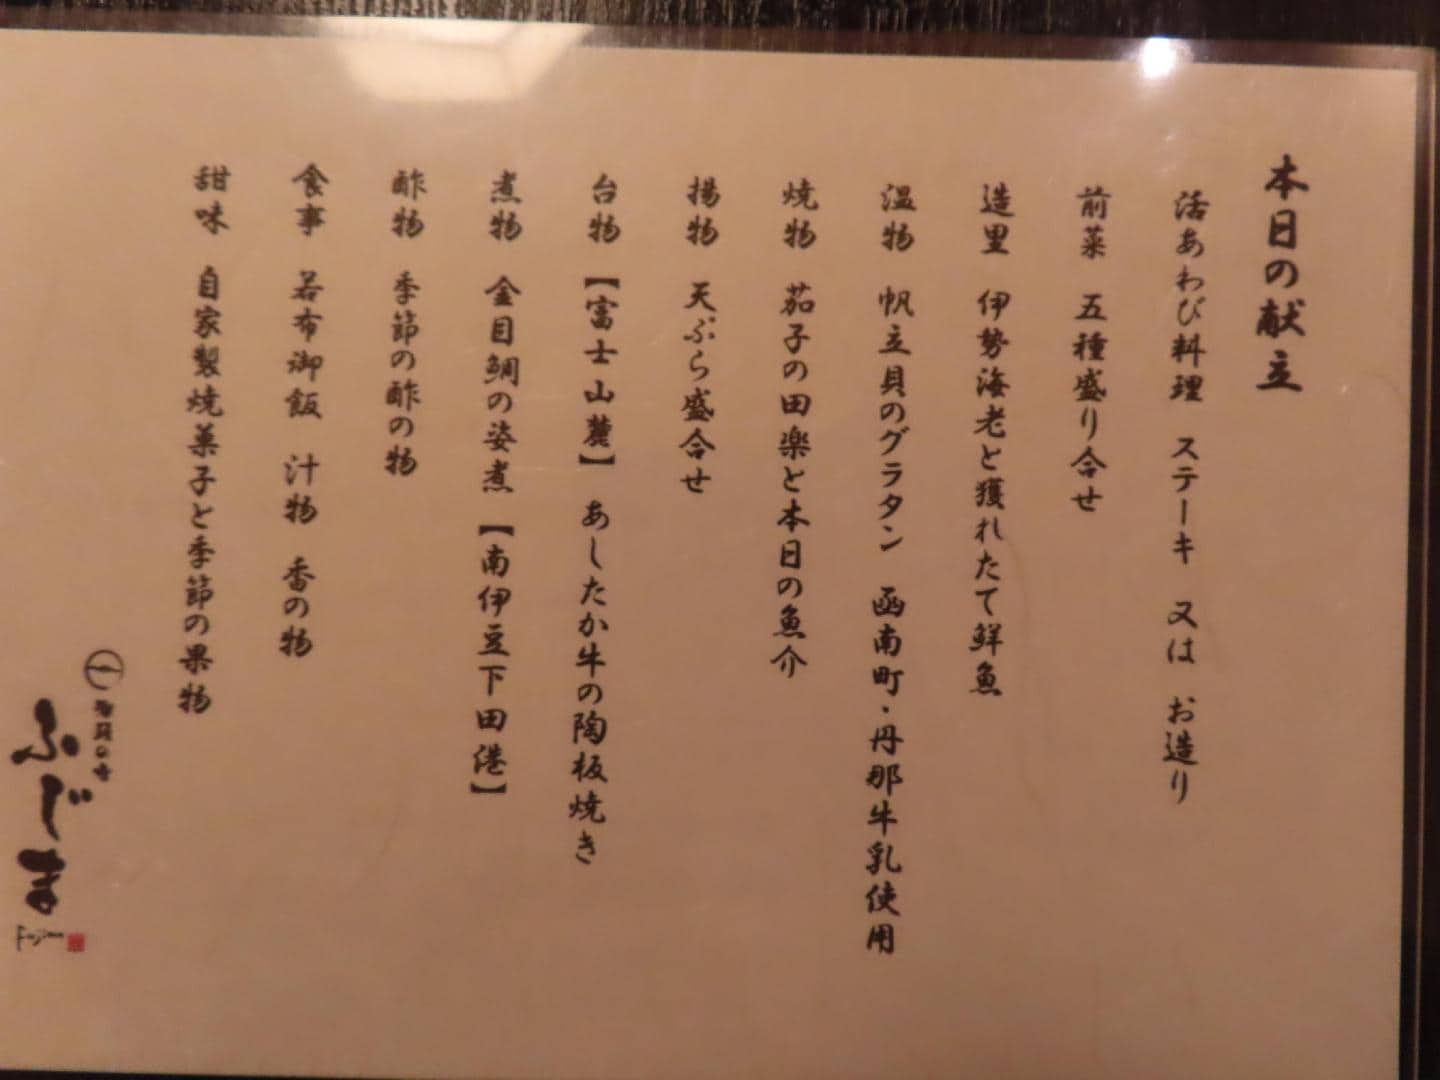 本日の献立
活あわび料理 ステーキ 又は お造り
前菜 五種盛り合せ
造里 伊勢海老と獲れたて鮮魚
温物 帆立貝のグラタン 函南町・丹那牛乳使用
焼物 茄子の田楽と本日の魚介
揚物 天ぷら盛合せ
台物 【富士山麓】 あしたか牛の陶板焼き
煮物 金目鯛の姿煮 【南伊豆下田港】
酢物 季節の酢の物
食事 若布御飯 汁物 香の物
甜味 自家製焼菓子と季節の果物
ふじま